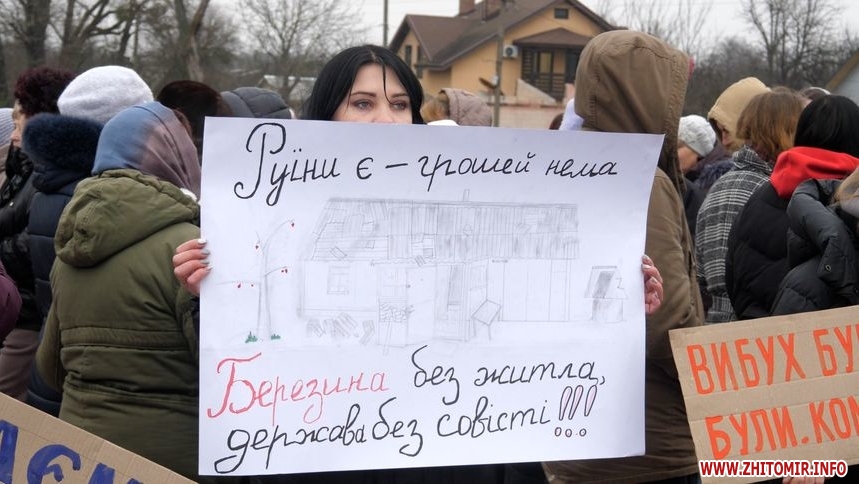 Руїни є – грошей нема
Березина без житла,
держава без совісті!!!
ВИБУХ
БУЛИ.
WWW.ZHITOMIR.INFO